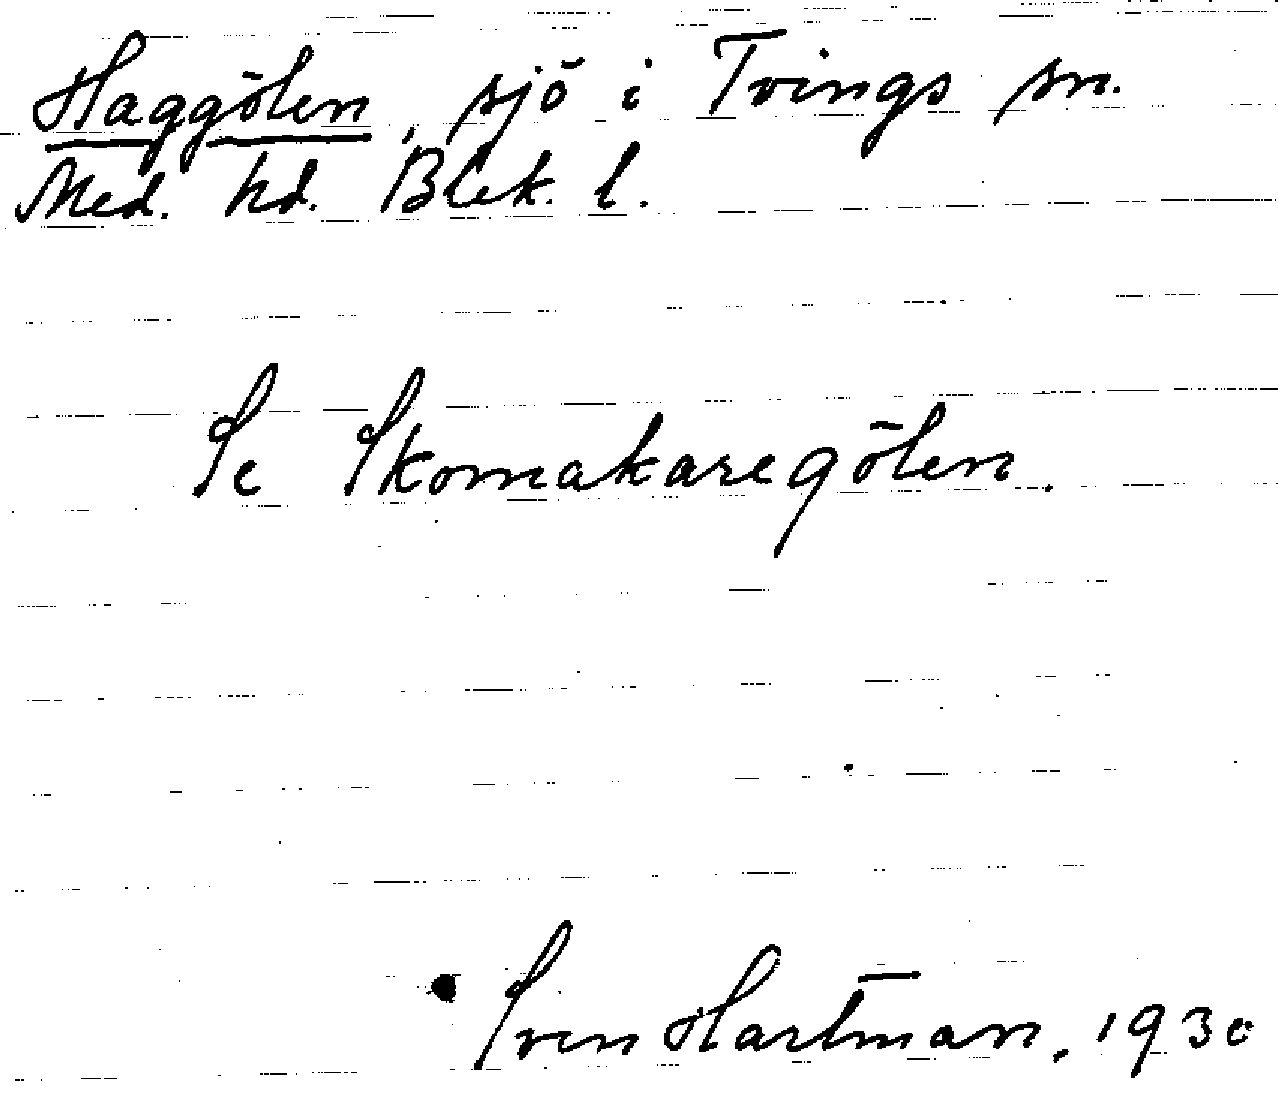 Haggölen, sjö i Tvings sn.
Med. hd. Blek. l.
Se Skomakaregölen.
Sven Hartman. 1930